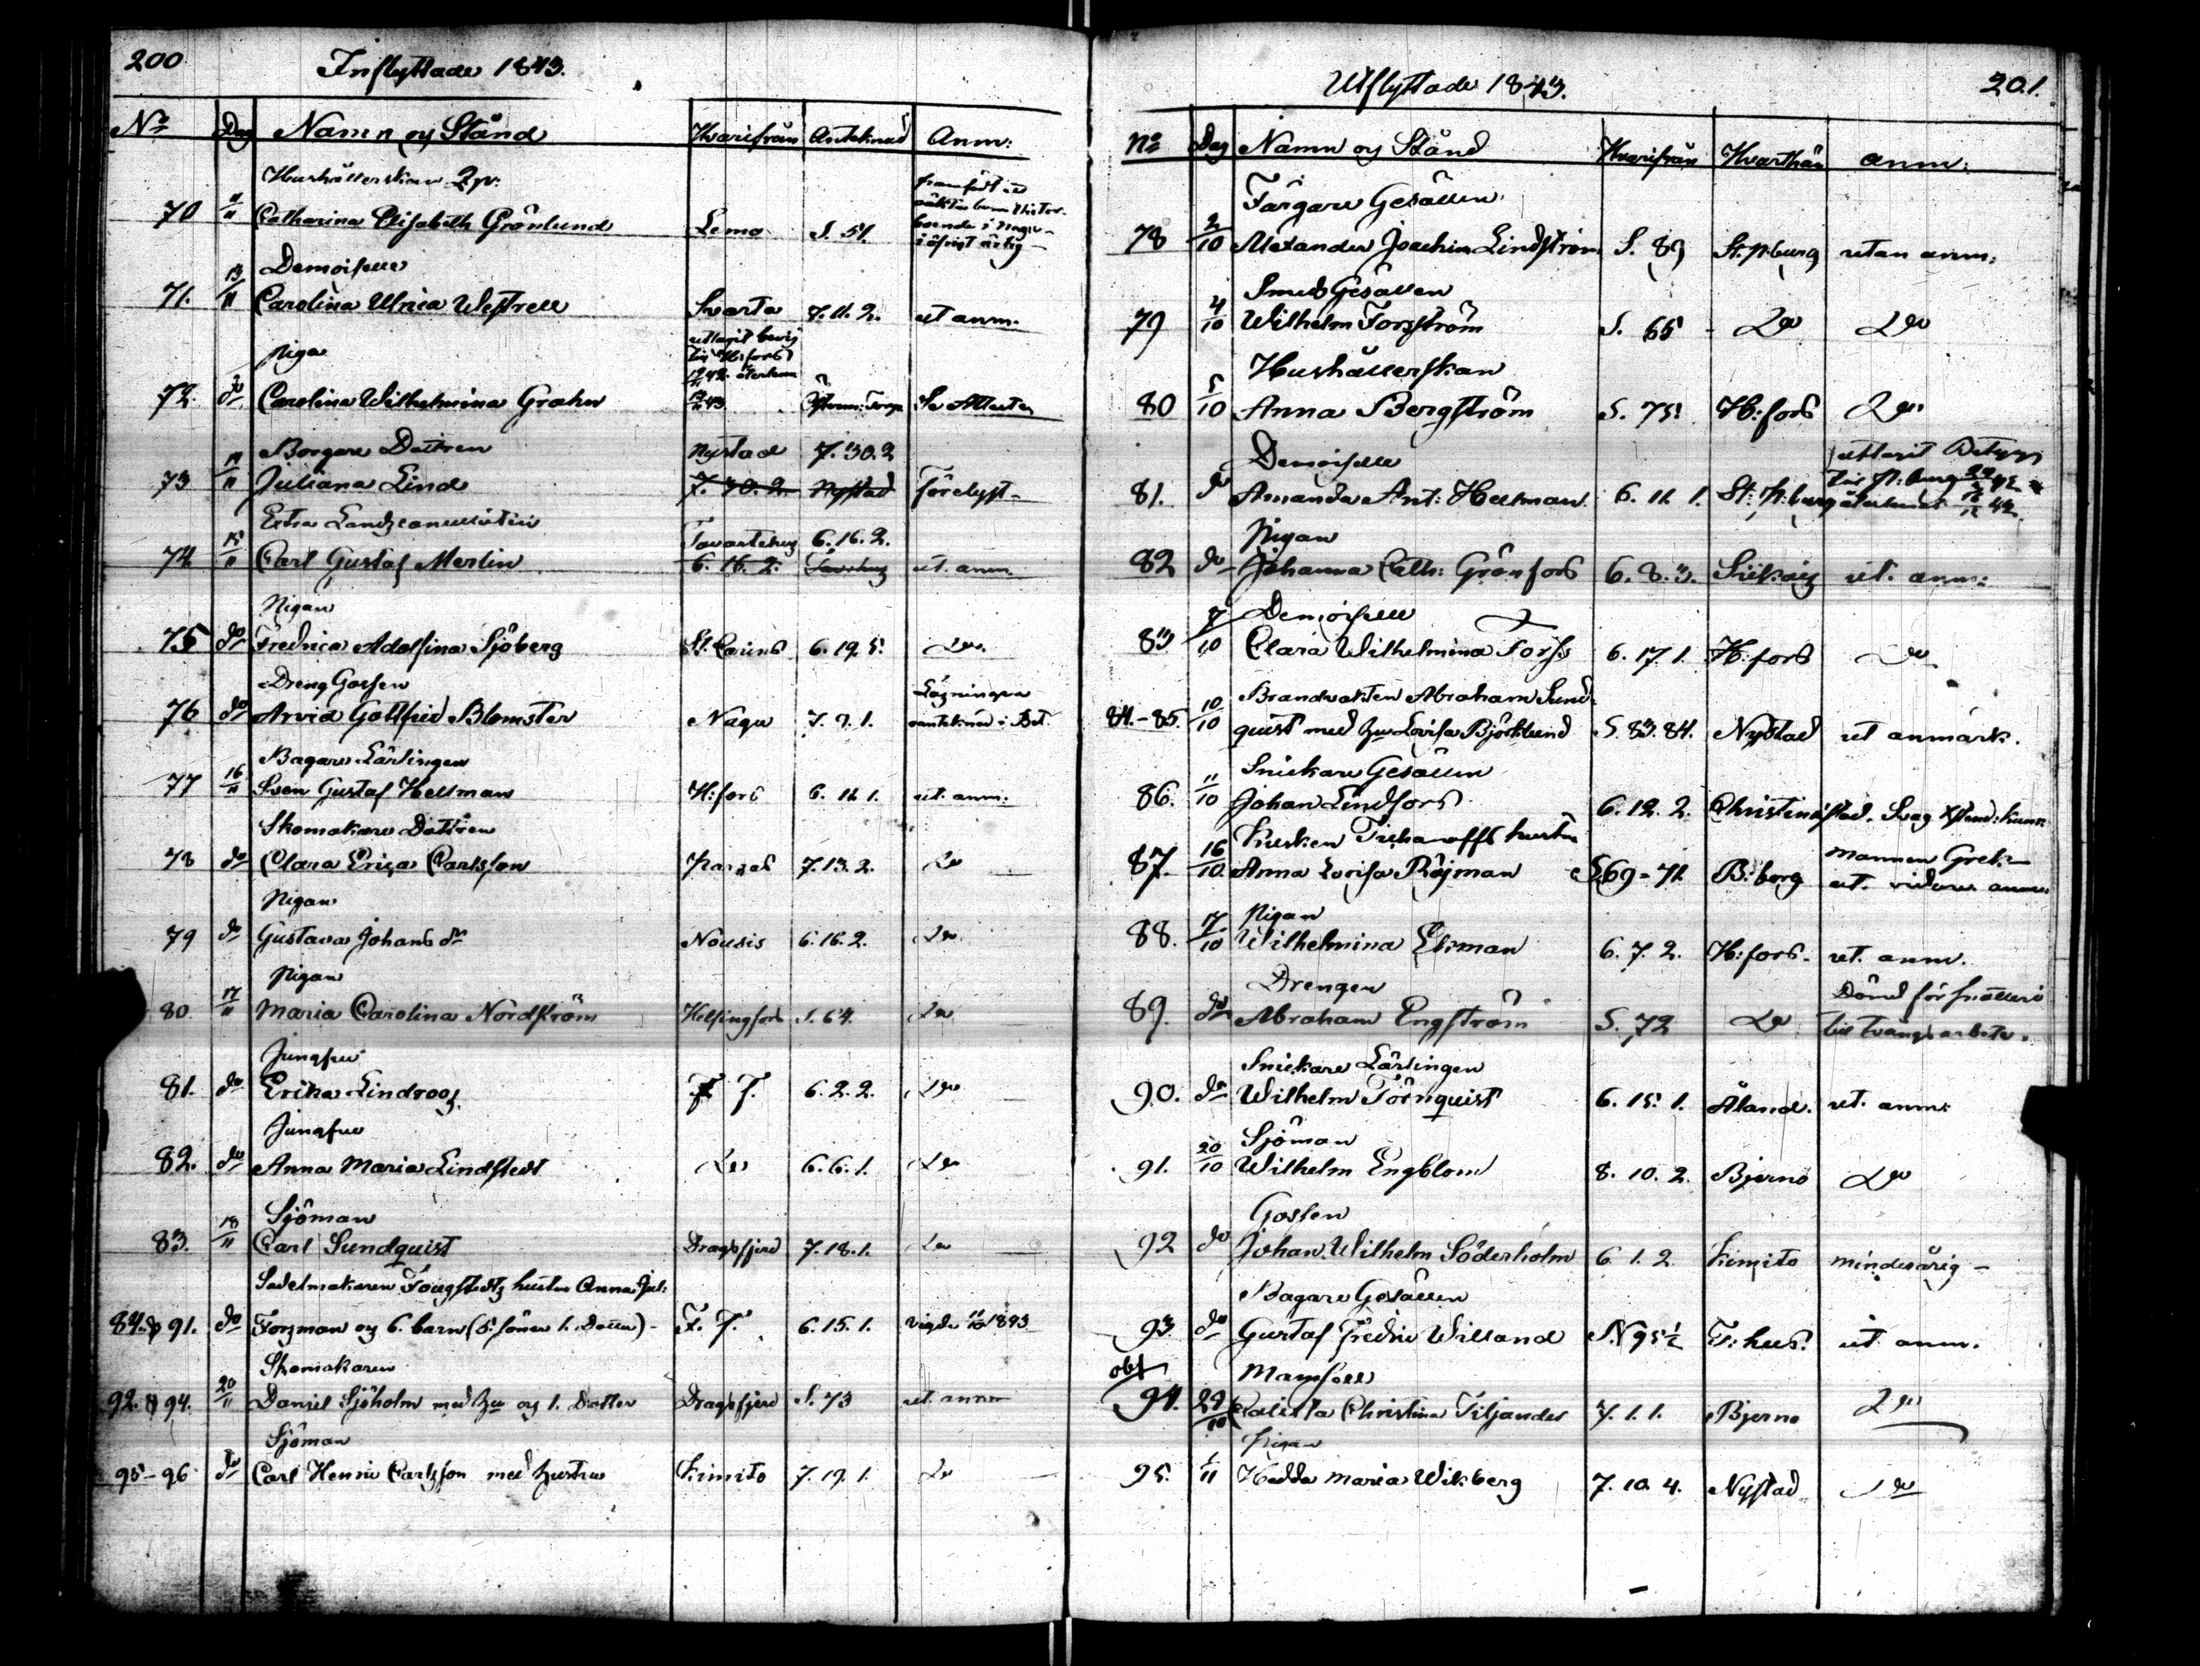 200
Inflyttade 1843.
No Dag Namn og Stånd Hvarifrån Anteknad Anm:
Hushållerskan
70 11/11 Catharina Elisabeth Grönlund Lemo S. 51.
Demoiselle
71. 13/11 Carolina Ulrica Westrell Svarta 7.11.2. ut anm.
Piga
72. do Carolina Wilhelmina Grahn Se Attesten
Borgare Dottren Nystad 7.30.2
73 14/11 Juliana Lind 7.30.2. Nystad Förelyst
Extra Landscancellisten Tavastehus 6.16.2.
74 15/11 Carl Gustaf Merlin 6.16.2. Tavastehus ut. anm.
Pigan
75 do Fredrica Adolfina Sjöberg St. Karins 6.19.5. Do
Dreng Gossen
76 do Arvid Gottfried Blomster Nagu 7.9.1. Läsningen anteknad i Bet.
Bagare Lärlingen
77 16/11 Sven Gustaf Hellman H:fors 6.11.1. ut. anm:
Skomakare Dottren
78 do Clara Erica Carlsson Pargas 7.13.2. Do
Pigan
79 do Gustava Johans dr Nousis 6.16.2. Do
Pigan
80 17/11 Maria Carolina Nordström Helsingfors S. 64. Do
Jungfru
81. do Erika Lindroos F. F. 6.2.2. Do
Jungfru
82. do Anna Maria Lindstedt Do 6.6.1. Do
Sjöman
83. 18/11 Carl Sundquist Dragsfjerd 7.18.1. Do
Sadelmakaren Fougstedts hustru Anna Jul:
84. à 91. do Forsman og 6. barn (5. söner 1. Dotter) F. F. 6.15.1. vigde 11/10 1843
Skomakaren
92. à 94. 20/11 Daniel Sjöholm med hu og 1. Dotter Dragsfjerd S. 73 ut. anm
Sjöman
95-96 do Carl Henric Carlsson med hustru Kimito 7.19.1. Do
Utflyttade 1843.
201.
No Dag Namn og Stånd Hvarifrån Hvarthän anm:
Färgare Gesällen
78 2/10 Alexander Joachim Lindström S. 89 St. P:burg utan anm:
Smeds Gesällen
79 4/10 Wilhelm Forsström S. 65 Do Do
Hushållerskan
80 5/10 Anna Bergström S. 75. H:fors Do
Demoiselle uttagit Betyg
81. do Amanda Ant: Hellman 6.11.1. St: P:burg
Pigan
82 do Johanna Cath: Grönfors 6.8.3. ut. anm:
Demoiselle
83 7/10 Clara Wilhelmina Forss 6.17.1. H:fors Do
Brandvakten Abraham Sund-
84.-85. 10/10 quist med hu Lovisa Björklund S. 83.84. Nystad ut anmärk.
Snickare Gesällen
86. 11/10 Johan Lindfors 6.12.2. Christinæstad. Svag Xstend: kunsk:
Kusken Tichanoffs hustru mannen Grek
87. 16/10 Anna Lovisa Röjman S. 69-71. B:borg ut. vidare anm.
Pigan
88. 17/10 Wilhelmina Ekman 6.7.2. H:fors. ut. anm.
Drengen Dömd för snatteri
89. do Abraham Engström S. 72 Do till tvångsarbete.
Snickare Lärlingen
90. do Wilhelm Törnquist 6.15.1. Åland. ut. anm:
Sjöman
91. 20/10 Wilhelm Engblom 8.10.2. Bjerno Do
Gossen
92 do Johan Wilhelm Söderholm 6.1.2. Kimito minderårig -
Bagare Gesällen
93. do Gustaf Fredric Willand S. N 95½ T:hus. ut anm.
obs Mamsell
94. 29/10 Calixta Christina Tiljander 7.1.1. Bjerno Do
Pigan
95. 1/11 Hedda Maria Wikberg 7.10.4. Nystad Do